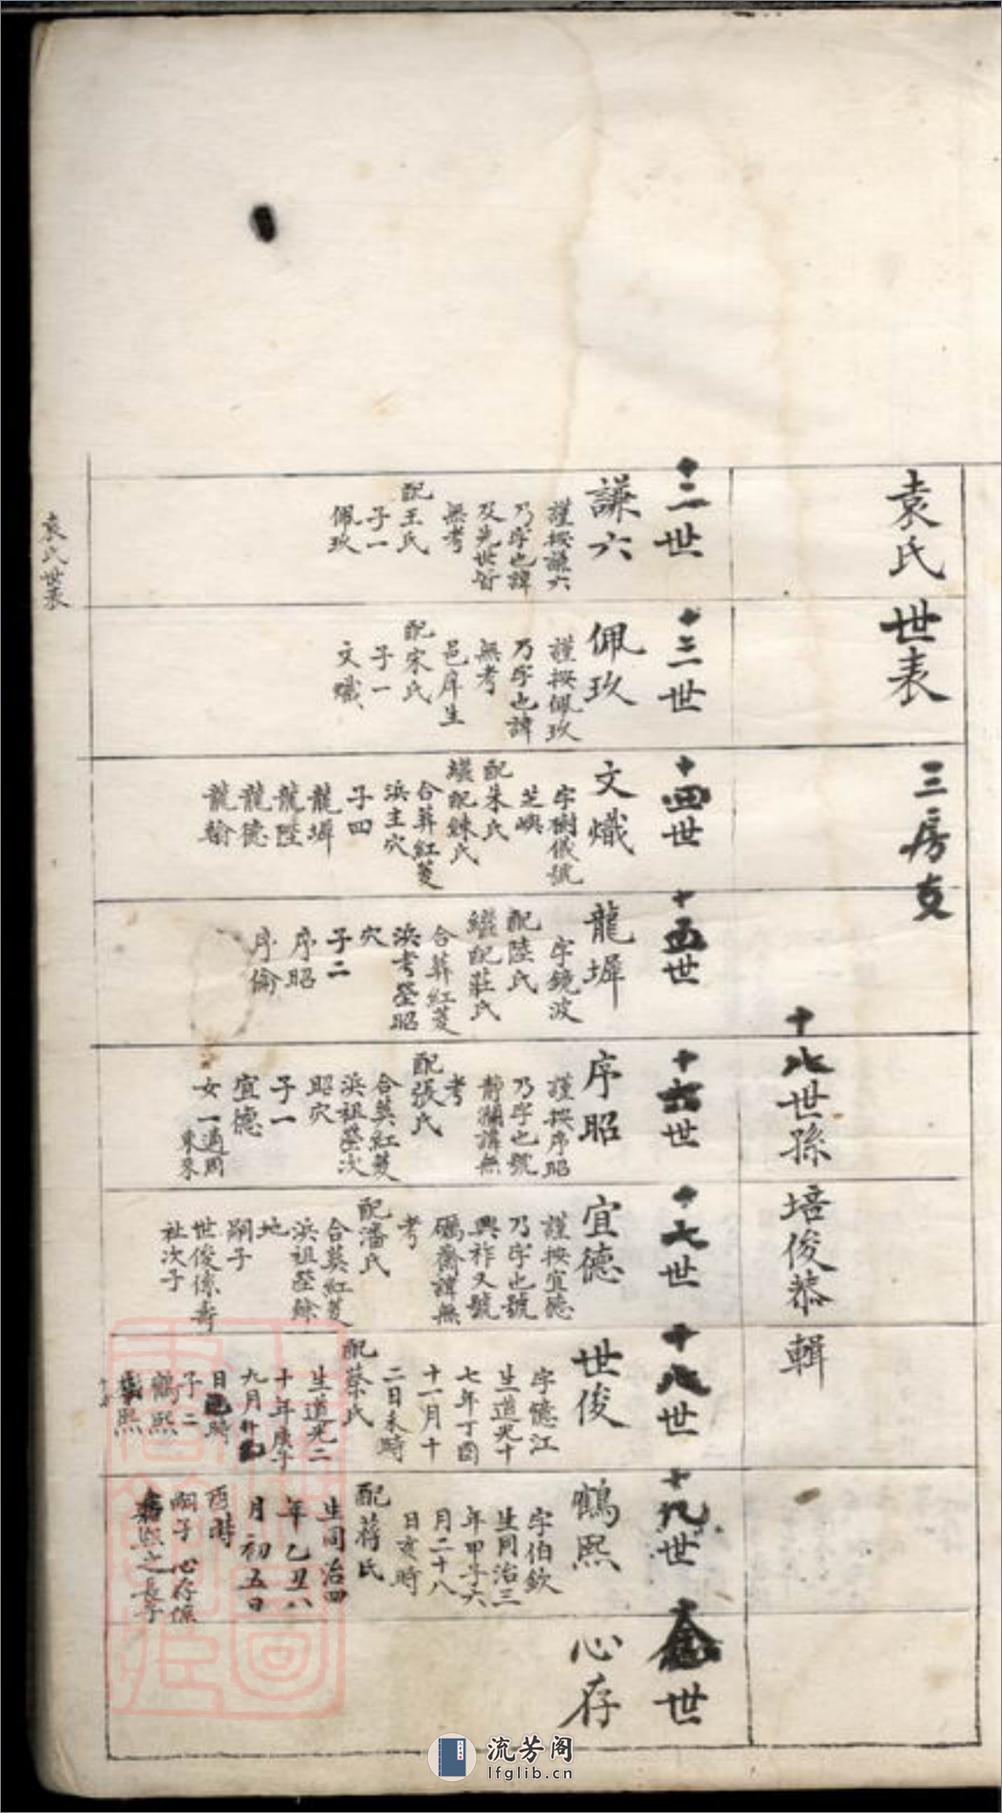 袁氏世表 三房支
十八世孫 培俊恭輯
十二世
謙六
謹按謙六
乃字也諱
及先世皆
無考
配王氏
子一
佩玖
十三世
佩玖
謹按佩玖
乃字也諱
無考
邑庠生
配宋氏
子一
文熾
十四世
文熾
字樹儀號
芝嶼
配朱氏
繼配錬氏
合葬紅菱
浜主穴
子四
龍墀
龍陞
龍德
龍翰
十五世
龍墀
字鏡波
配陸氏
繼配莊氏
合葬紅菱
浜考塋昭
穴
子二
序昭
序倫
十六世
序昭
謹按序昭
乃字也號
靜瀾諱無
考
配張氏
合葬紅菱
浜祖塋次
昭穴
子一
宜德
女一適周
十七世
宜德
謹按宜德
乃字也號
興祚又號
礪齋諱無
考
配潘氏
合葬紅菱
浜祖塋餘
地
嗣子
世俊係壽
祉次子
十八世
世俊
字憶江
生道光十
七年丁酉
十一月十
二日未時
配蔡氏
生道光二
十年庚子
九月
日巳時
子二
鶴熙
熙
十九世
鶴熙
字伯欽
生同治三
年甲子六
月二十八
日亥時
配蔣氏
生同治四
年乙丑八
月初五日
酉時
嗣子 心存係
熙之長子
世
心存
袁氏世表
流芳阁
lfglib.cn